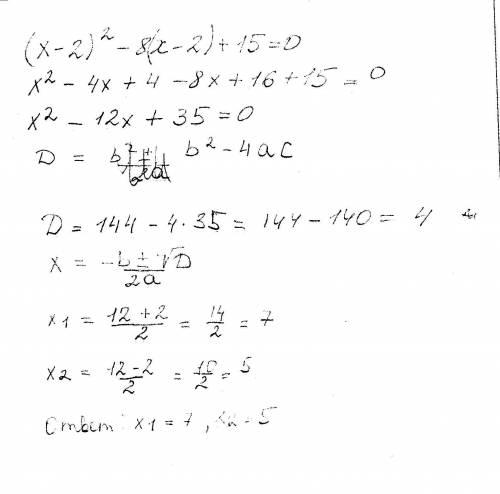 (x-2)² - 8(x-2) + 15 = 0
x² - 4x + 4 - 8x + 16 + 15 = 0
x² - 12x + 35 = 0
D = b² - 4ac
D = 144 - 4·35 = 144 - 140 = 4
x = -b ± √D / 2a
x1 = 12+2 / 2 = 14/2 = 7
x2 = 12-2 / 2 = 10/2 = 5
Ответ: x1 = 7, x2 = 5